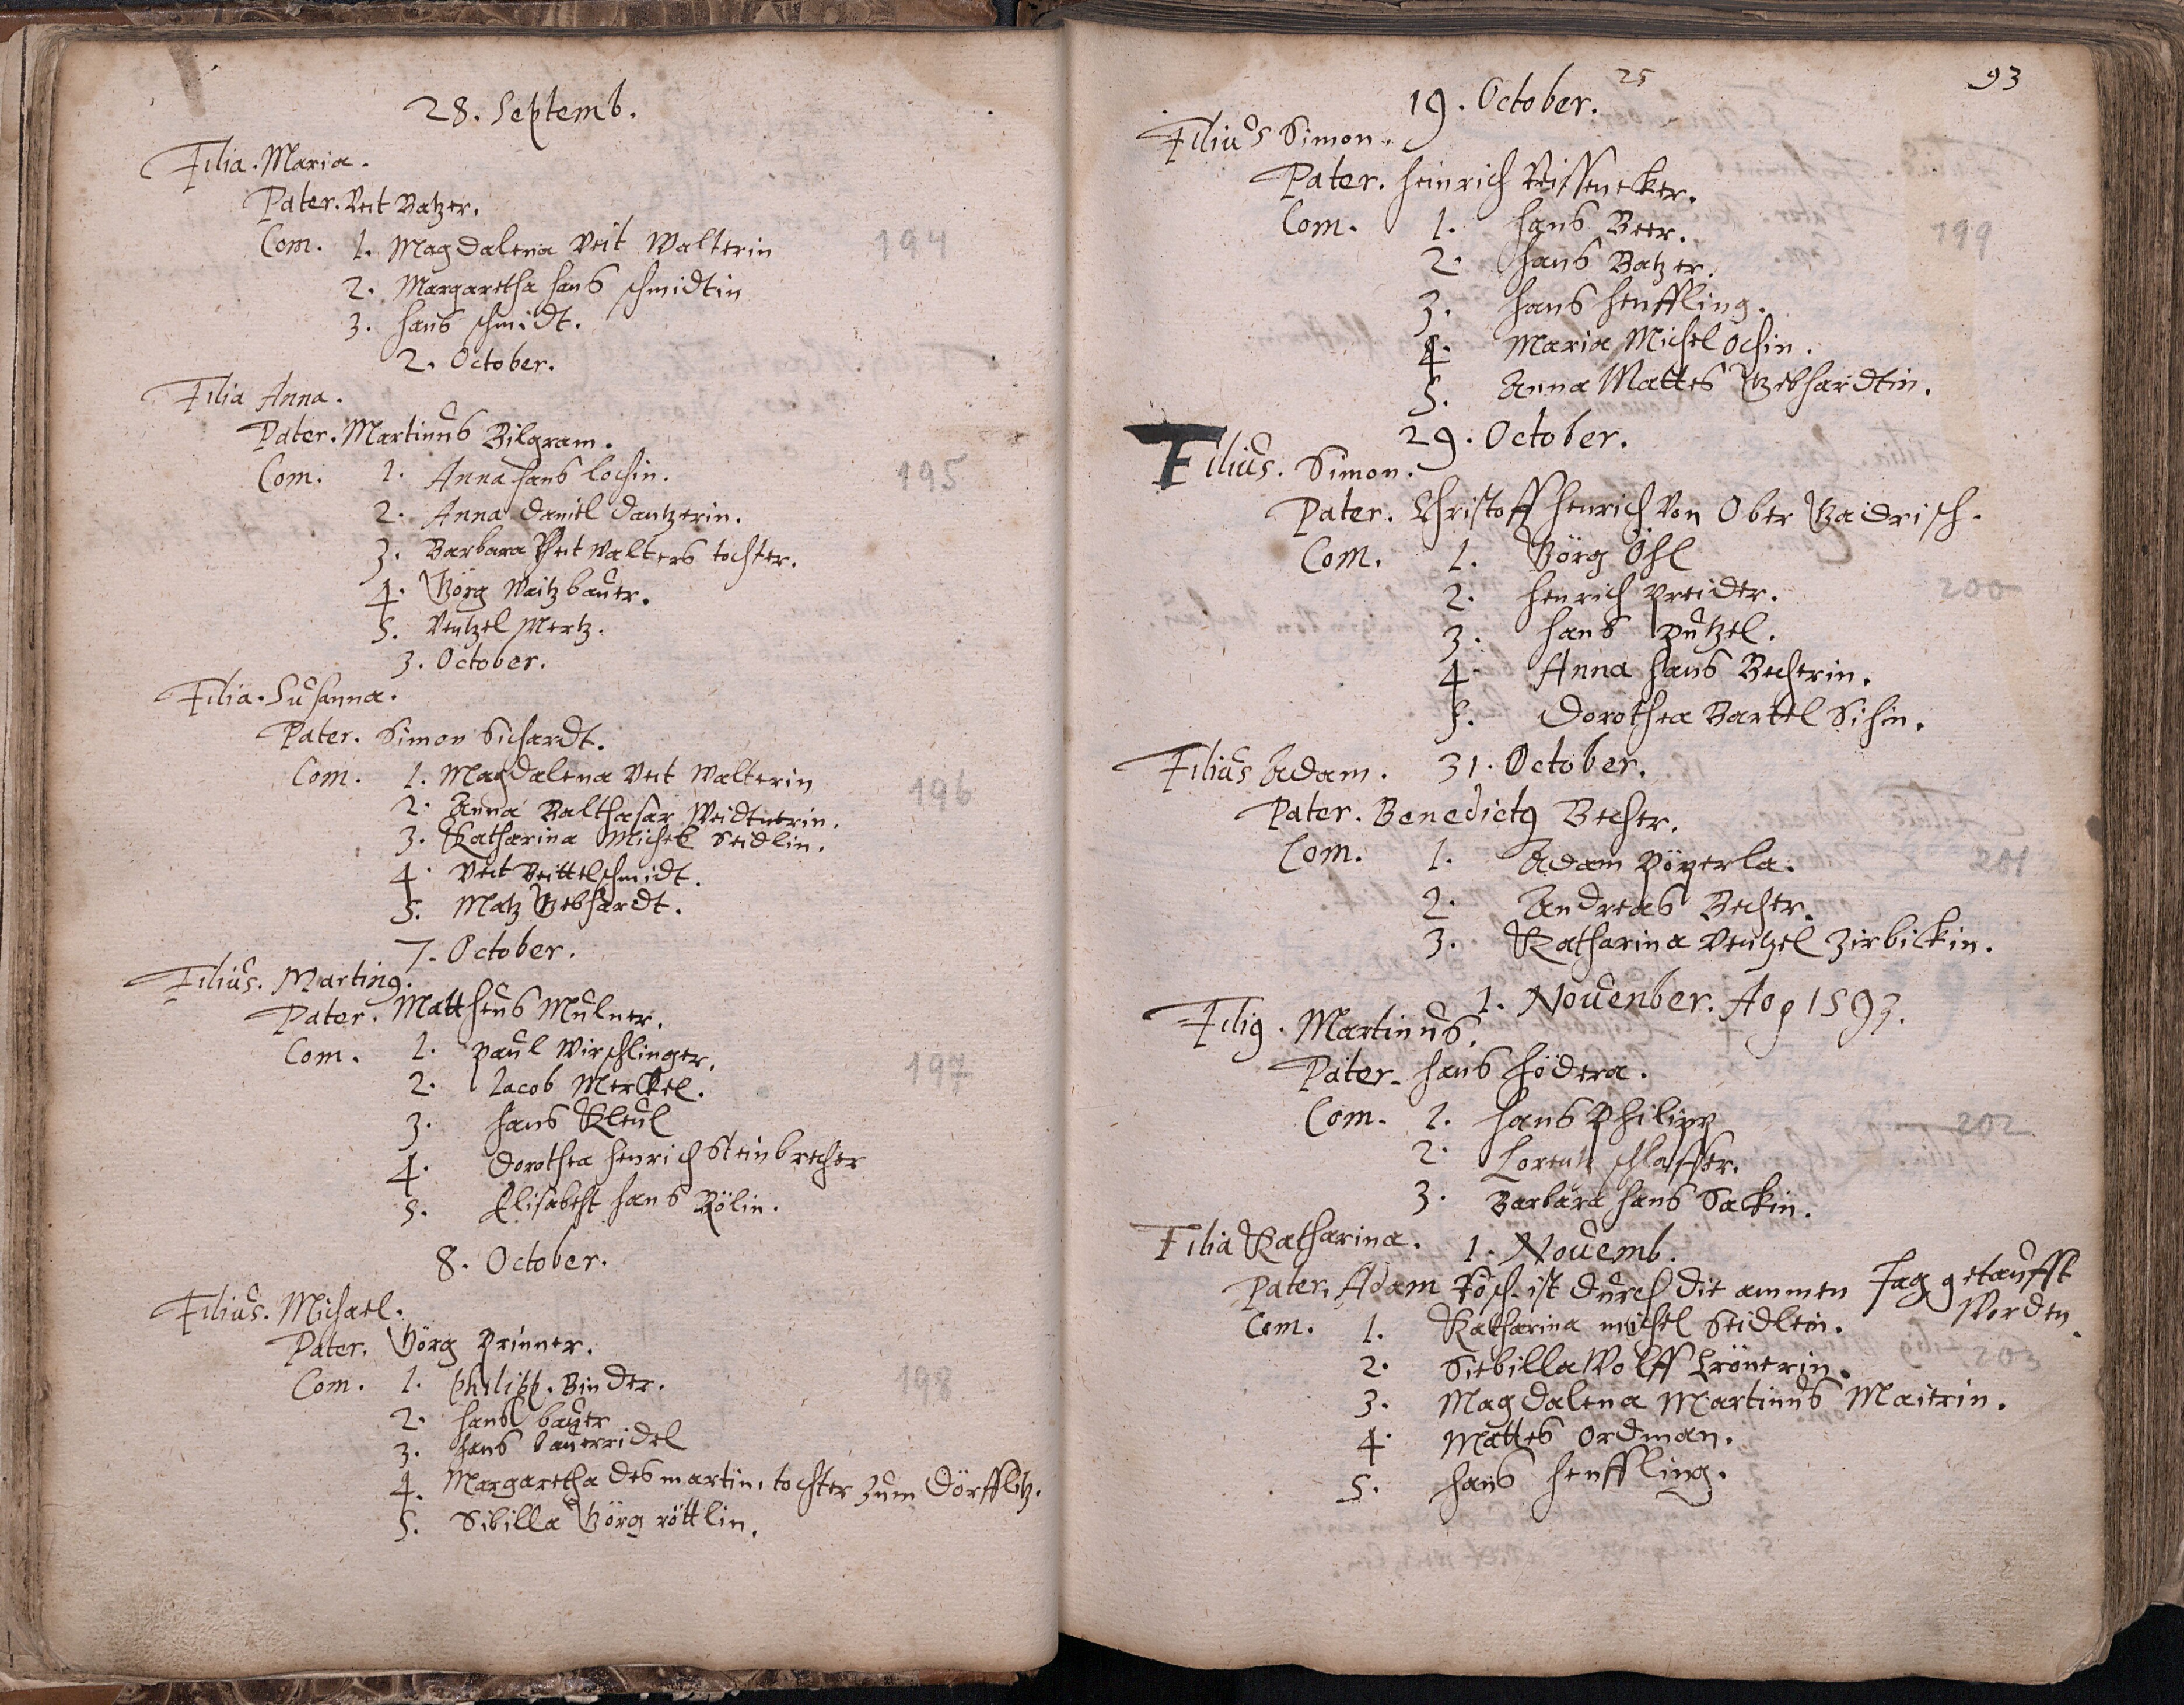 28. Septemb.
Filia. Maria.
Pater. Veit Batzer.
Com. 1. Magdalena Veit Walterin
194
2. Margaretha hans schmidtin
3. hans schmidt.
2. October.
Filia Anna.
Pater. Martinus Bilgram.
Com. 1. Anna hans lochin.
195
2. Anna Daniel Dantzerin.
3. Barbara Veit Walters tochter.
4. Görg Waitzbauer.
5. Ventzel Mertz.
3. October.
Filia. Susanna.
Pater. Simon Sichardt.
Com. 1. Magdalena Veit Walterin
196
2. Anna Balthasar Weidtnerin.
3. Katharina Michel Seidlin.
4. Veit Beittelschmidt.
5. Matz Gebhardt.
7. October.
Filius. Martin9.
Pater. Mattheus Mulner.
Com. 1. Paul Wirschlinger.
197
2. Jacob Merckel.
3. hans Kleul
4. Dorothea Henrich Steinbrecher
5. Elisabeht hans Rölin.
8. October.
Filius. Michael.
Pater. Görg Prinner.
Com. 1. Philipp. Binder.
198
2. hans bauer
3. hans bauerridel
4. Margaretha des martin. tochter zum Dörfflitz.
5. Sibilla Görg röttlin.
25
93
19. October.
Filius Simon.
Pater. Heinrich Wissenecker.
Com. 1. hans Beer.
199
2. hans Batzer.
3. hans Heuffling.
4. Maria Michel Ochin.
5. Anna Mattes Gebhardtin.
29. October.
Filius. Simon.
Pater. Christoff Henrich Von Ober
Com. 1. Görg Öhl
2. Henrich Preider.
200
3. hans Putzel.
4. Anna hans Becherin.
5. Dorothea Bartel Sihin.
Filius Adam. 31. October.
Pater. Benedict9 Becher.
Com. 1. Adam Pöperla.
201
2. Andreas Becher.
3. Katharina Ventzel Zirbickin.
1. Nouenber. Ao 1593.
Fili9. Martinus.
Pater. hans Födera.
Com. 1. hans Philipp
202
2. Lorentz schlosser.
3. Barbara hans Sackin.
Filia Katharina. 1. Nouemb.
Pater. Adam Kösch. ist durch die ammen Jag getaufft
Worden.
Com. 1. Katharina michel Seidlein.
203
2. Siebilla Wolff Krönerin.
3. Magdalena Martinus Maierin.
4. Mattes Ordman.
5. hans Heuffling.